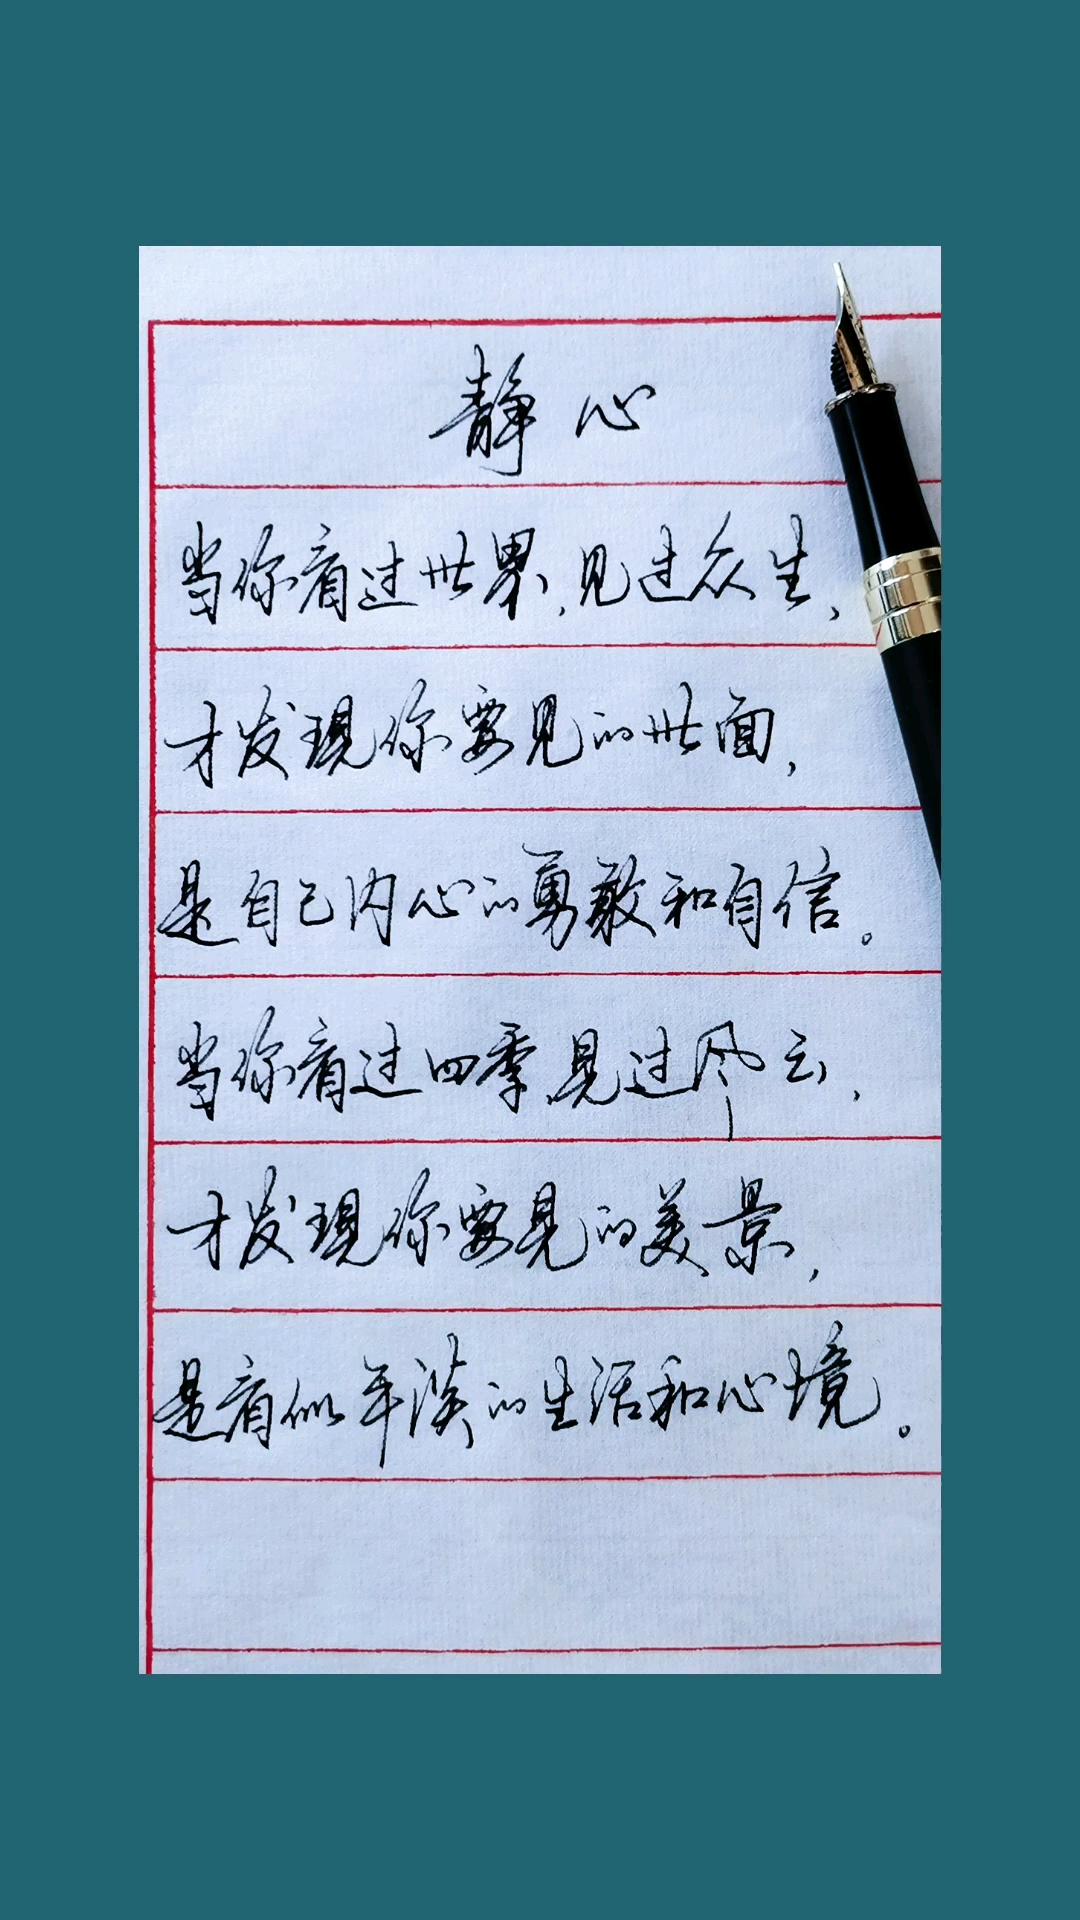 静心
当你看过世界,见过众生,
才发現你要见的世面,
是自己内心的勇敢和自信。
当你看过四季,見过风云,
才发現你要見的美景,
是看似平淡的生活和心境。